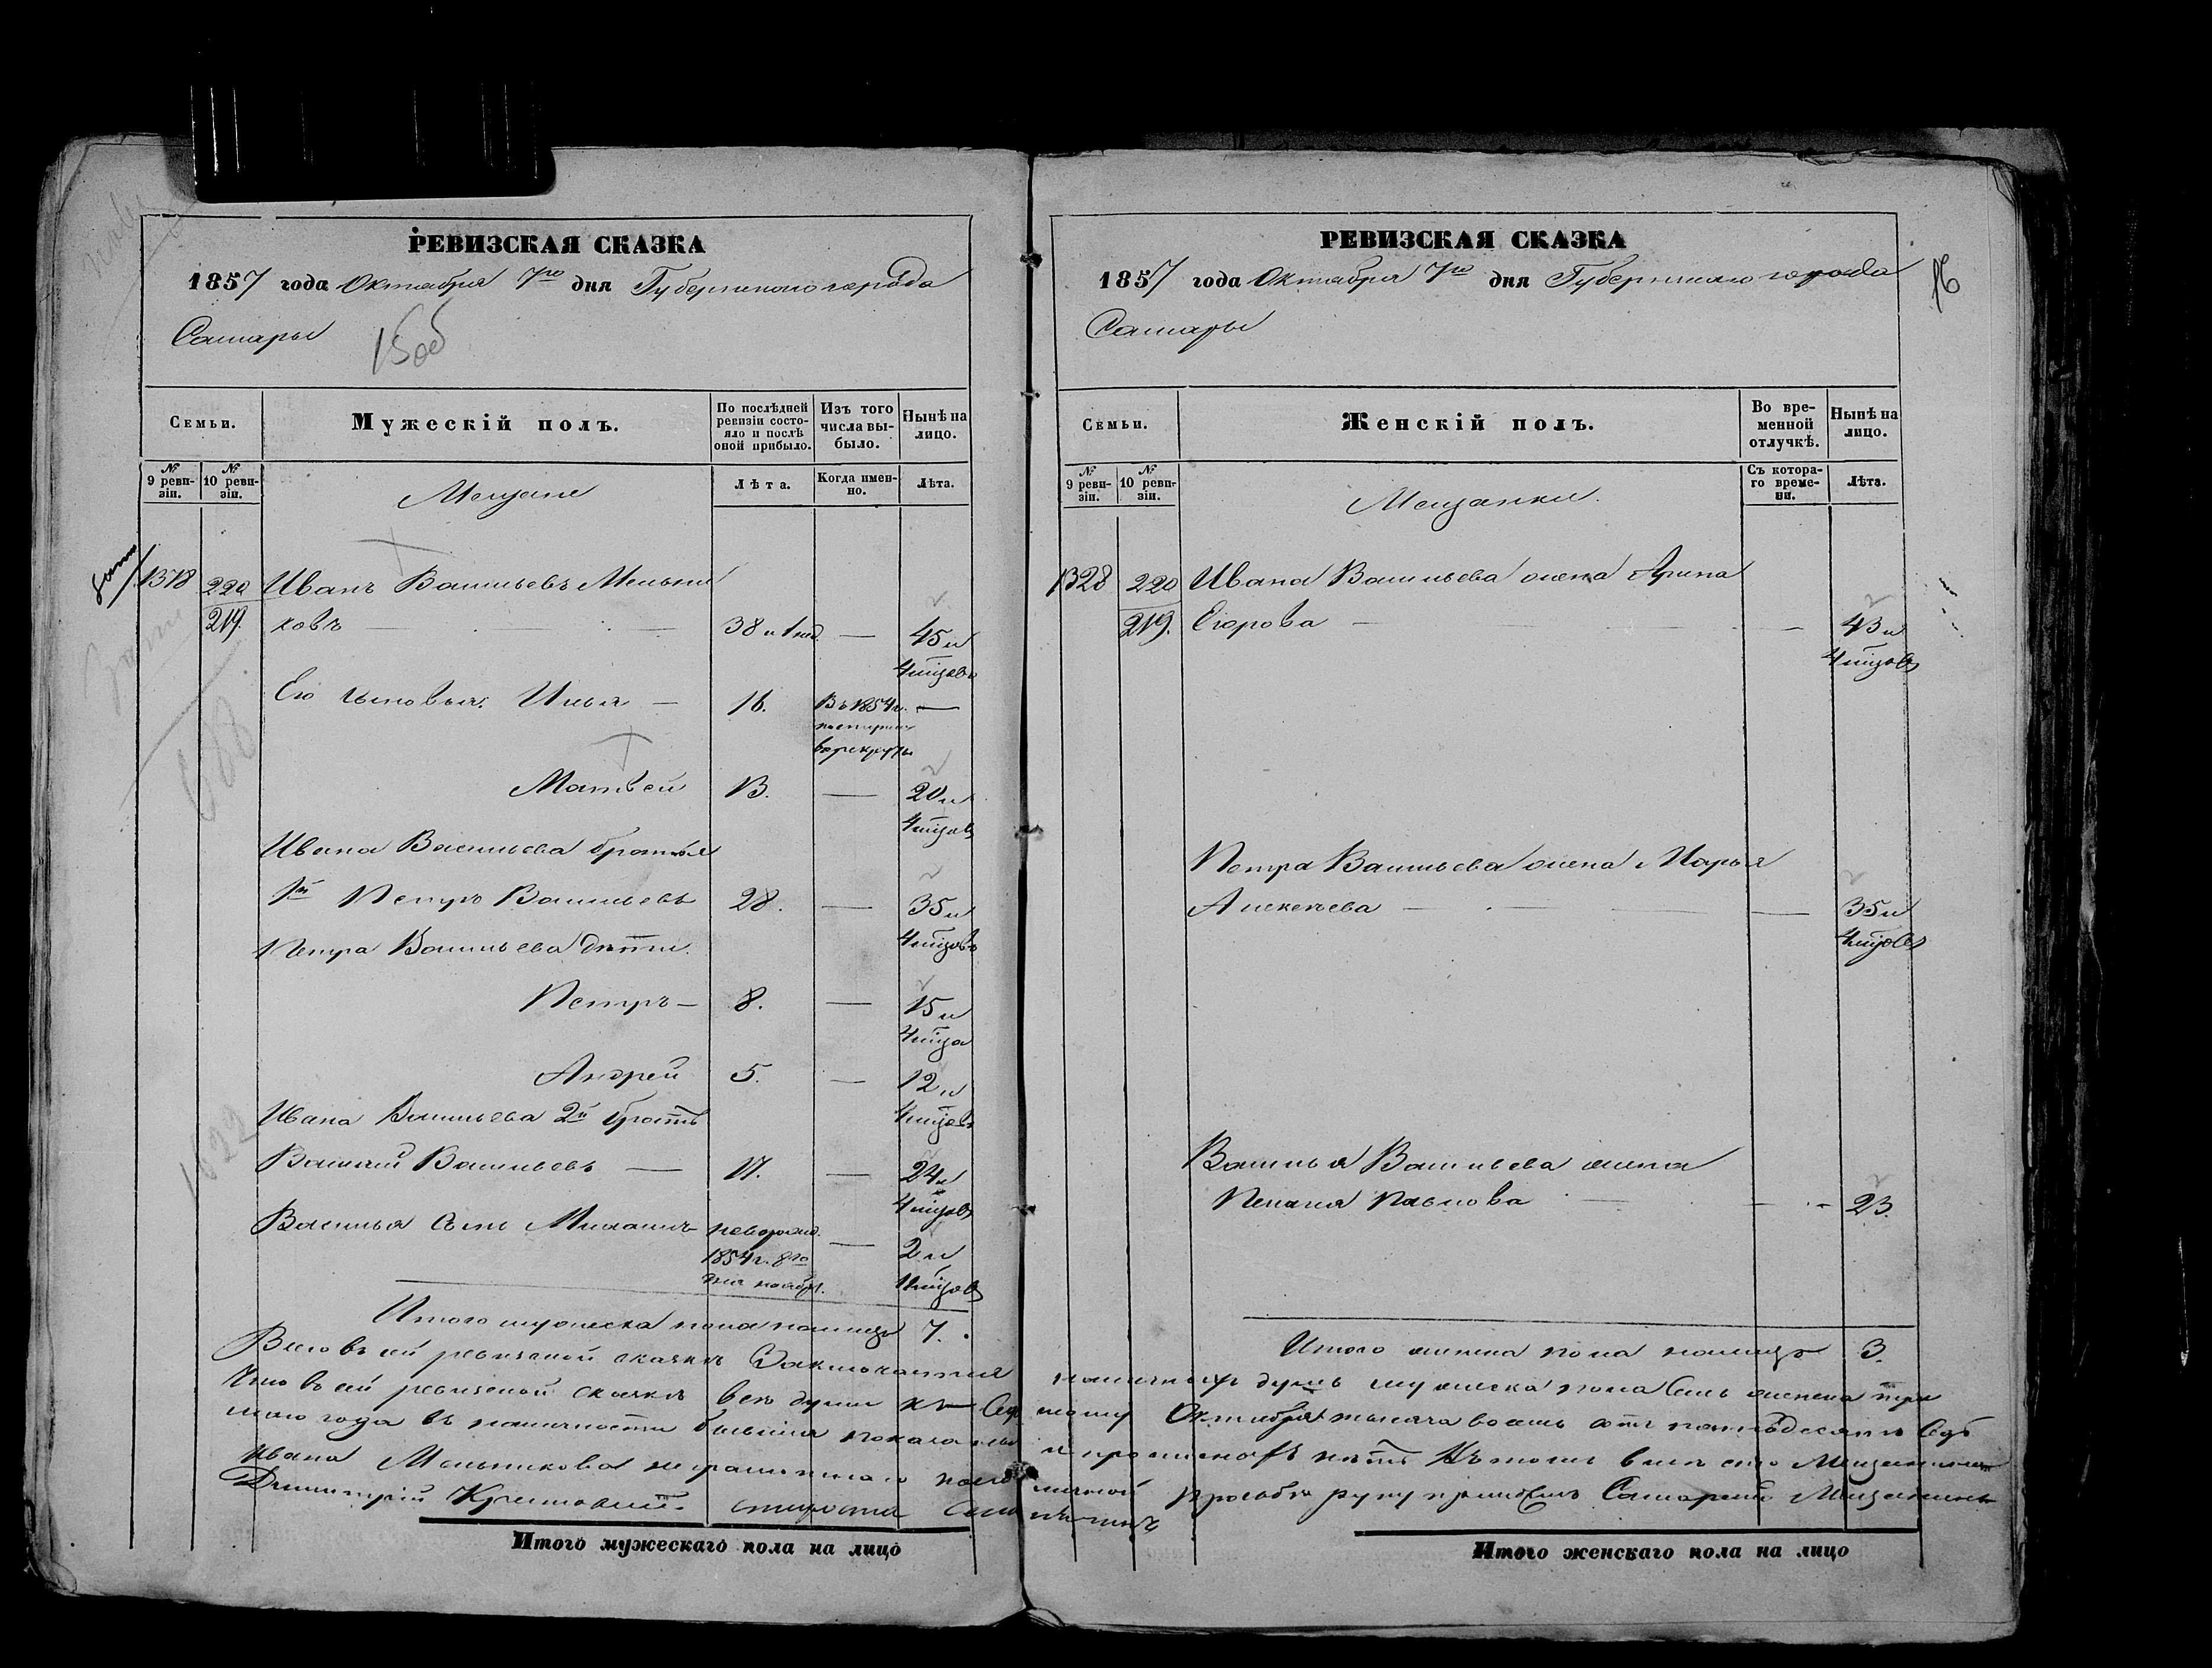 РЕВИЗСКАЯ СКАЗКА
1857 года Октября 7го дня Губернского города
Самары
15об
Семьи.
Мужескій полъ.
По послѣдней ревизіи состояло и послѣ оной прибыло.
Изъ того числа выбыло.
Нынѣ на лицо.
№ 9 ревизіи.
№ 10 ревизіи.
Мещане
Лѣта.
Когда именно.
Лѣта.
1378 220 Иванъ Васильевъ Мельни
219 ковъ — 38 и — 45 и
4 мцовъ
Его сыновья: Илья — 16. Въ 1854 г. —
въ рекруты
Матвей 13. — 20 и
4 мцовъ
Ивана Васильева братья
1й Петръ Васильевъ 28. — 35 и
4 мцовъ
Петра Васильева дѣти.
Петръ — 8. — 15 и
4 мца
Андрей 5. — 12 и
4 мцовъ
Ивана Васильева 2й братъ
Василий Васильевъ — 17. — 24 и
4 мцовъ
Василья сынъ новорожд. — 2 и
1854 г. 8го
дня ноябр. 11 мцовъ
Итого мужеска пола налицо 7.
Итого мужескаго пола на лицо
РЕВИЗСКАЯ СКАЗКА
1857 года Октября 7го дня Губернского города
Самары
16
Семьи.
Женскій полъ.
Во временной отлучкѣ.
Нынѣ на лицо.
№ 9 ревизіи.
№ 10 ревизіи.
Мещанки.
Съ котораго времени.
Лѣта.
1328 220 Ивана Васильева жена Арина
219. Егорова — — 43 и
4 мцовъ
Петра Васильева жена Марья
Алексеева — — 35 и
4 мцовъ
Василья Васильева жена
Пелагея Павлова — 23.
Итого женска пола налицо 3.
Всего въ сей ревизской сказкѣ Заключается наличныхъ душъ мужеска пола семь женска три
Что въ сей ревизской сказкѣ все души къ Седь мому Октября тысяча восемь сотъ пятьдесятъ Седь
маго года въ наличности бывшия показаны и прописныхъ нѣтъ Въ томъ вместо Мещанина
Ивана Мельникова неграмотнаго по его личной прозьбе руку приложилъ Самарский Мещанинъ
Дмитрий староста
Итого женскаго пола на лицо